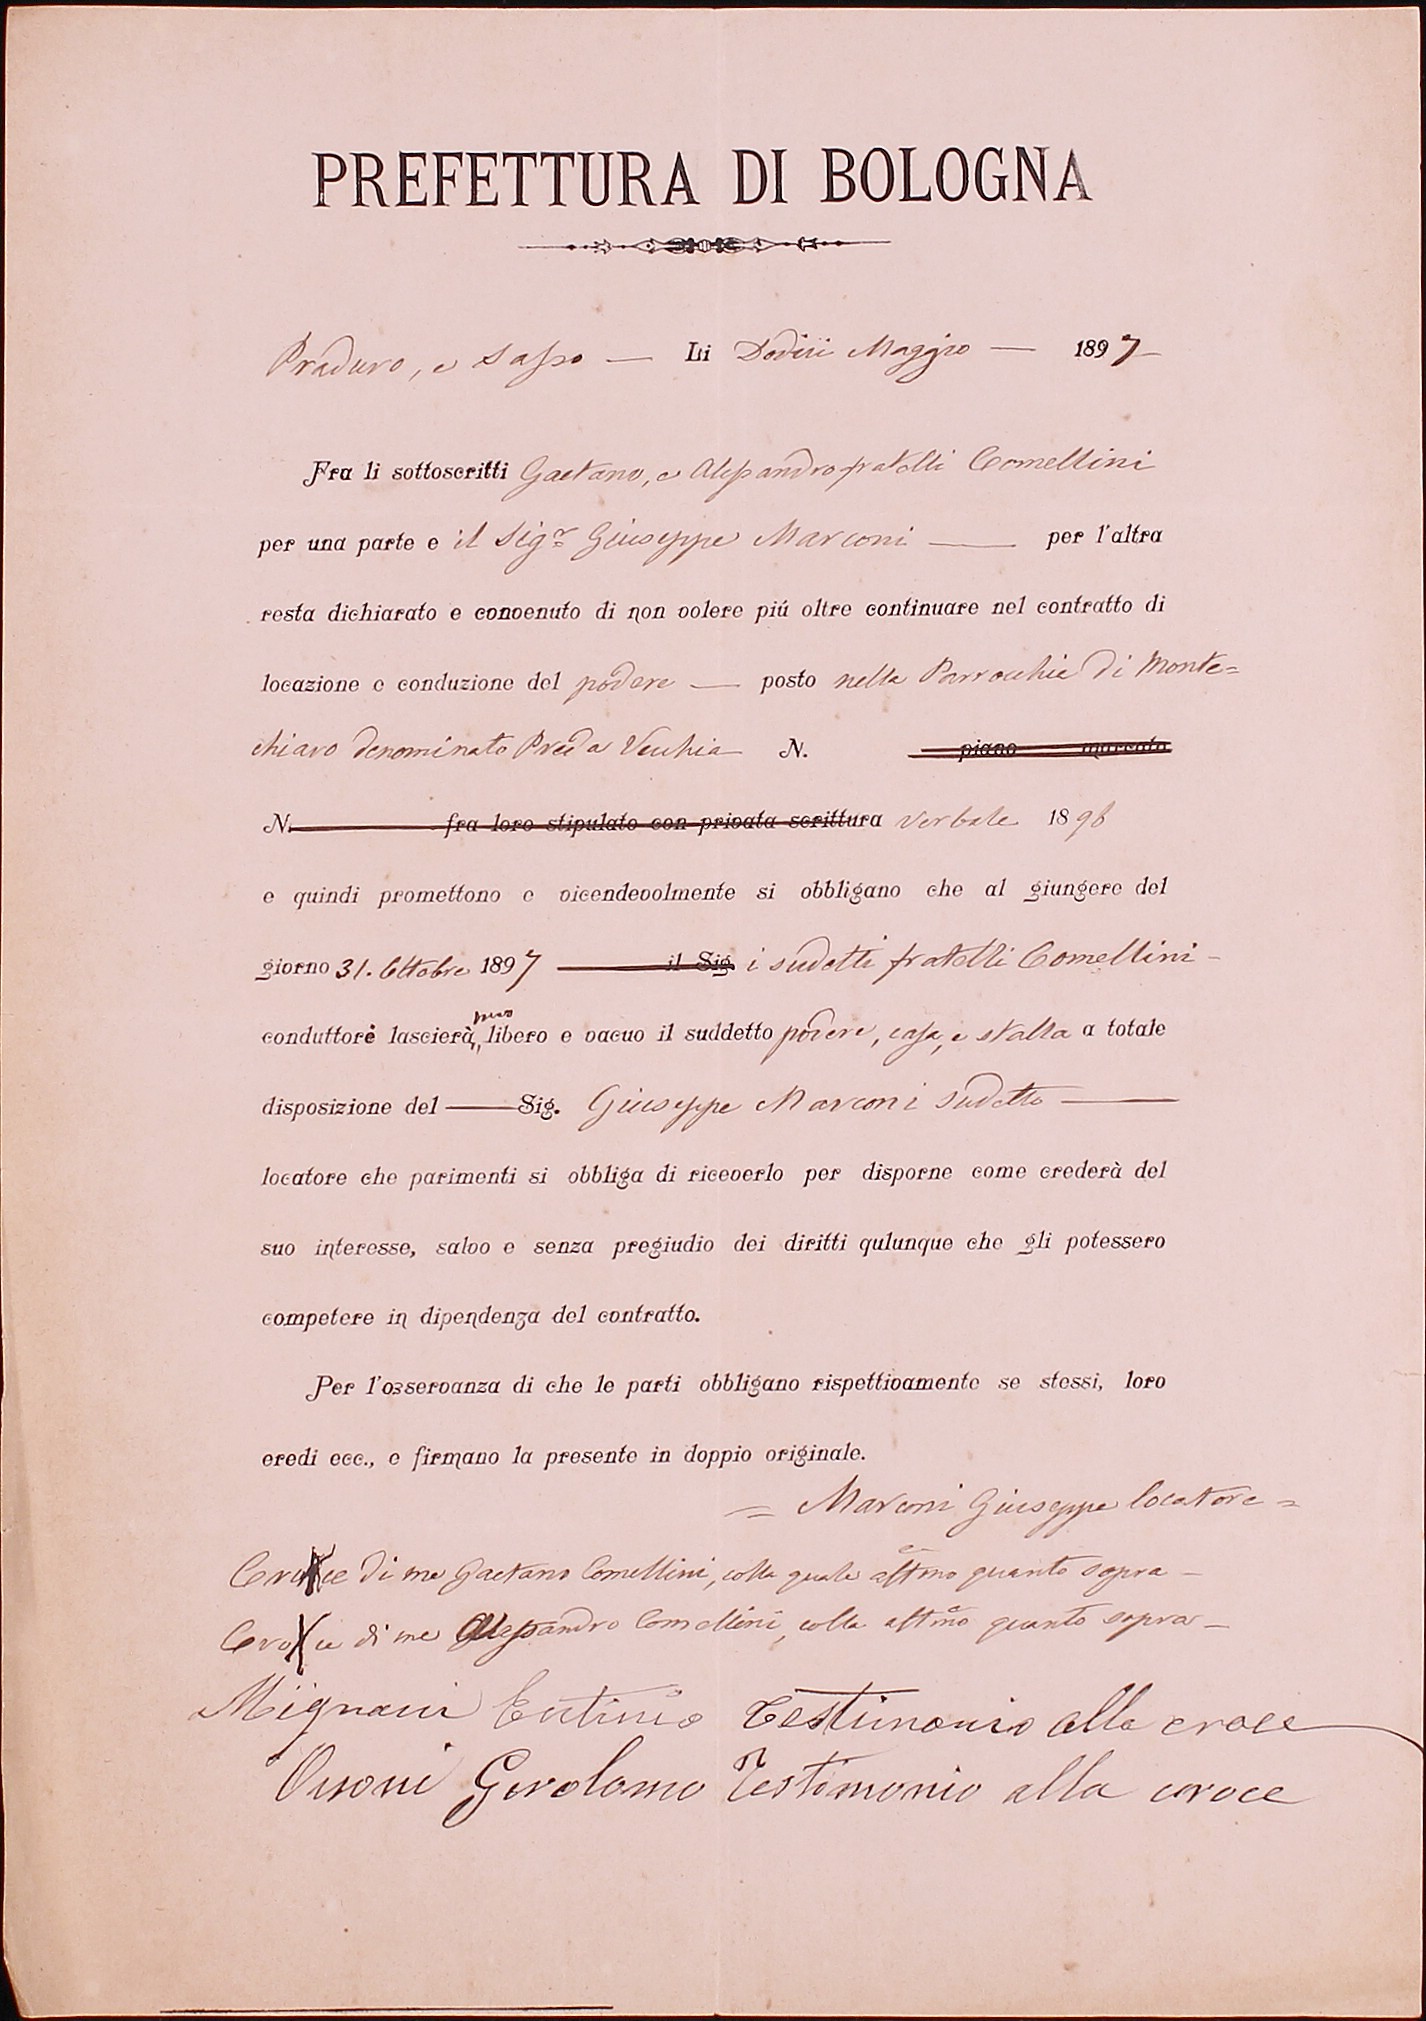 PREFETTURA DI BOLOGNA
Praduro, e Sasso — Li Dodici Maggio — 1897 —
Fra li sottoscritti Gaetano, e Alessandro fratelli Comellini
per una parte e il Sigr. Giuseppe Marconi — per l'altra
resta dichiarato e convenuto di non volere piú oltre continuare nel contratto di
locazione e conduzione del podere — posto nella Parrochia di Monte=
chiaro denominato Preda Vecchia N. piano marcato
N. fra loro stipulato con privata scrittura verbale 1896
e quindi promettono e vicendevolmente si obbligano che al giungere del
giorno 31. Ottobre 1897 il Sig. i sudetti fratelli Comellini -
conduttori lascierà libero e vacuo il suddetto podere, casa, e stalla a totale
disposizione del — Sig. Giuseppe Marconi sudetto —
locatore che parimenti si obbliga di riceverlo per disporne come crederà del
suo interesse, salvo e senza pregiudio dei diritti qulunque che gli potessero
competere in dipendenza del contratto.
Per l'osservanza di che le parti obbligano rispettivamente se stessi, loro
eredi ecc., e firmano la presente in doppio originale.
= Marconi Giuseppe locatore =
Cro X ce di me Gaetano Comellini, colla quale affmo quanto sopra —
Cro X ce di me Alessandro Comellini, colla affmo quanto sopra —
Mignani Testimonio alla croce
Girolamo Testimonio alla croce